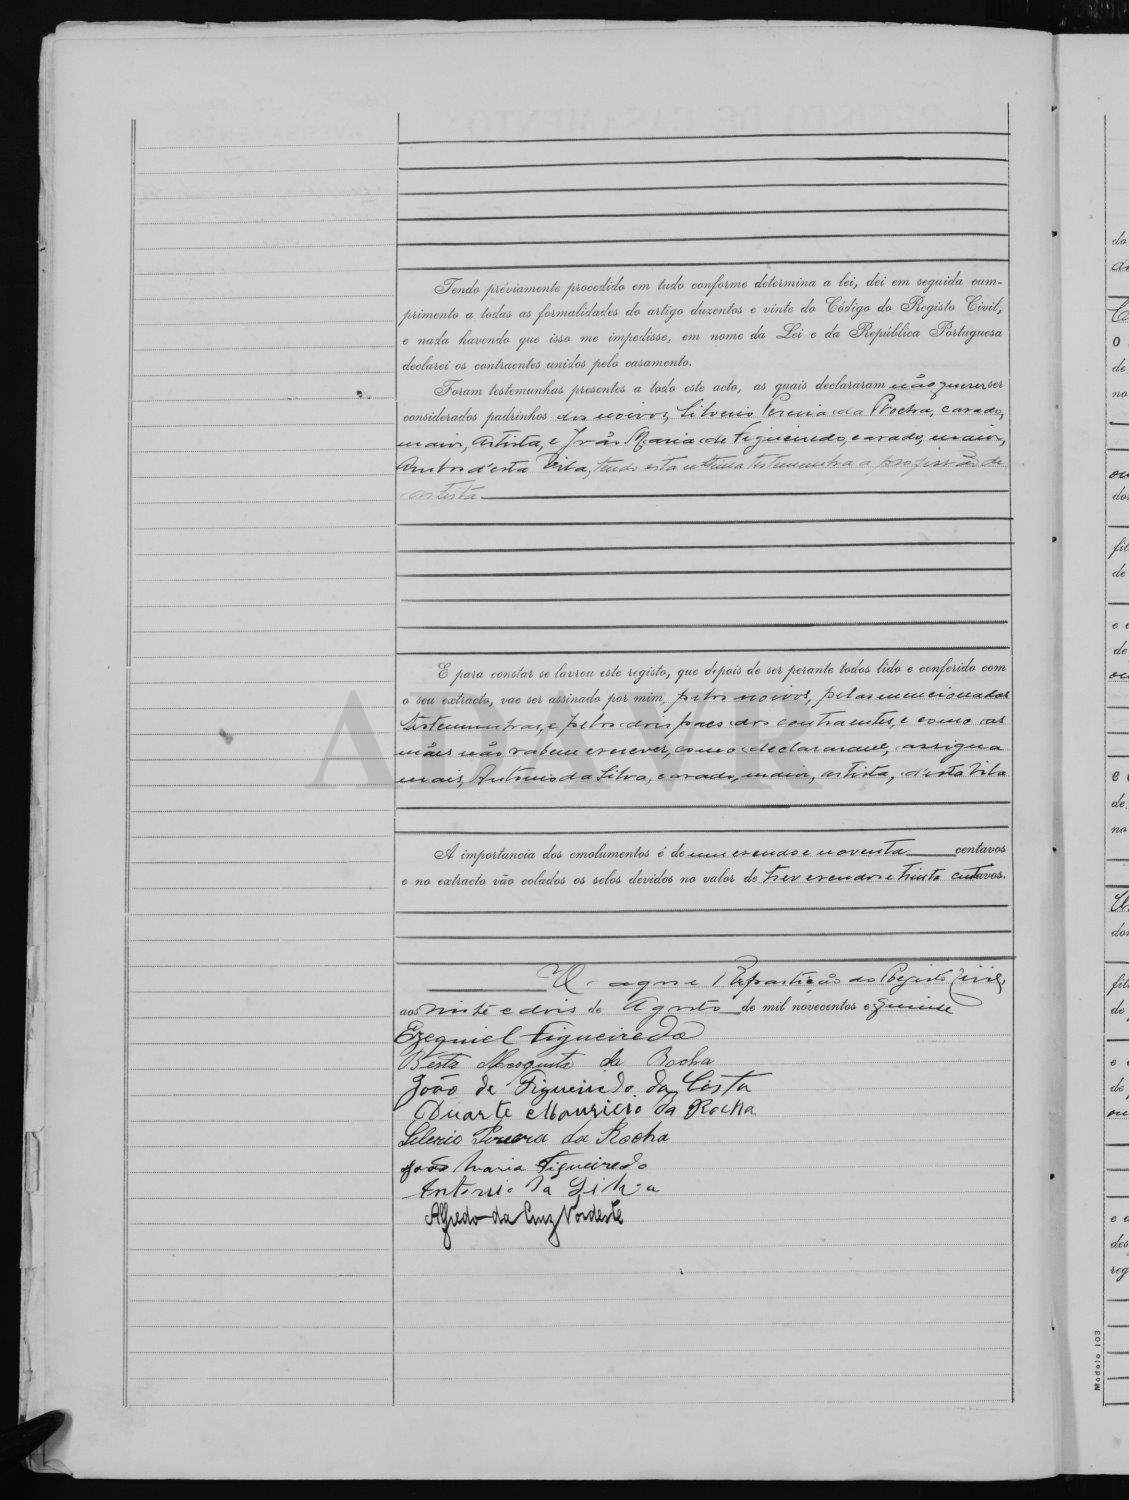 Tendo préviamente procedido em tudo conforme determina a lei, dei em seguida cum-
primento a todas as formalidades do artigo duzentos e vinte do Código do Registo Civil,
e nada havendo que isso me impedisse, em nome da Lei e da República Portuguesa
declarei os contraentes unidos pelo casamento.
Foram testemunhas presentes a todo este acto, as quais declararam não querer ser
considerados padrinhos dos noivos, Silverio Pereira da Rocha, casado,
maior, artista, e João Maria de Figueiredo, casado, maior,
ambos d'esta Vila, tendo esta ultima testemunha a profissão de
artista
E para constar se lavrou este registo, que depois de ser perante todos lido e conferido com
o seu extracto, vae ser assinado por mim, pelos noivos, pelas mencionadas
testemunhas, e pelos dois paes dos contraentes, e como as
mães não sabem escrever, como declararam, assigna
mais, Antonio da Silva, casado, maior, artista, d'esta Vila
A importancia dos emolumentos é de um escudo e noventa centavos
e no extracto vão colados os selos devidos no valor de tres escudos e trinta centavos.
Repartição do Registo Civil,
aos vinte e dois de Agosto de mil novecentos e quinse
Ezequiel Figueiredo
Mesquita da Rocha
João de Figueiredo da Costa
Duarte Mauricio da Rocha
Silverio Pereira da Rocha
João Maria Figueiredo
Antonio da Silva
Alfredo da Cruz Nordeste
ADAVR
Modelo 103